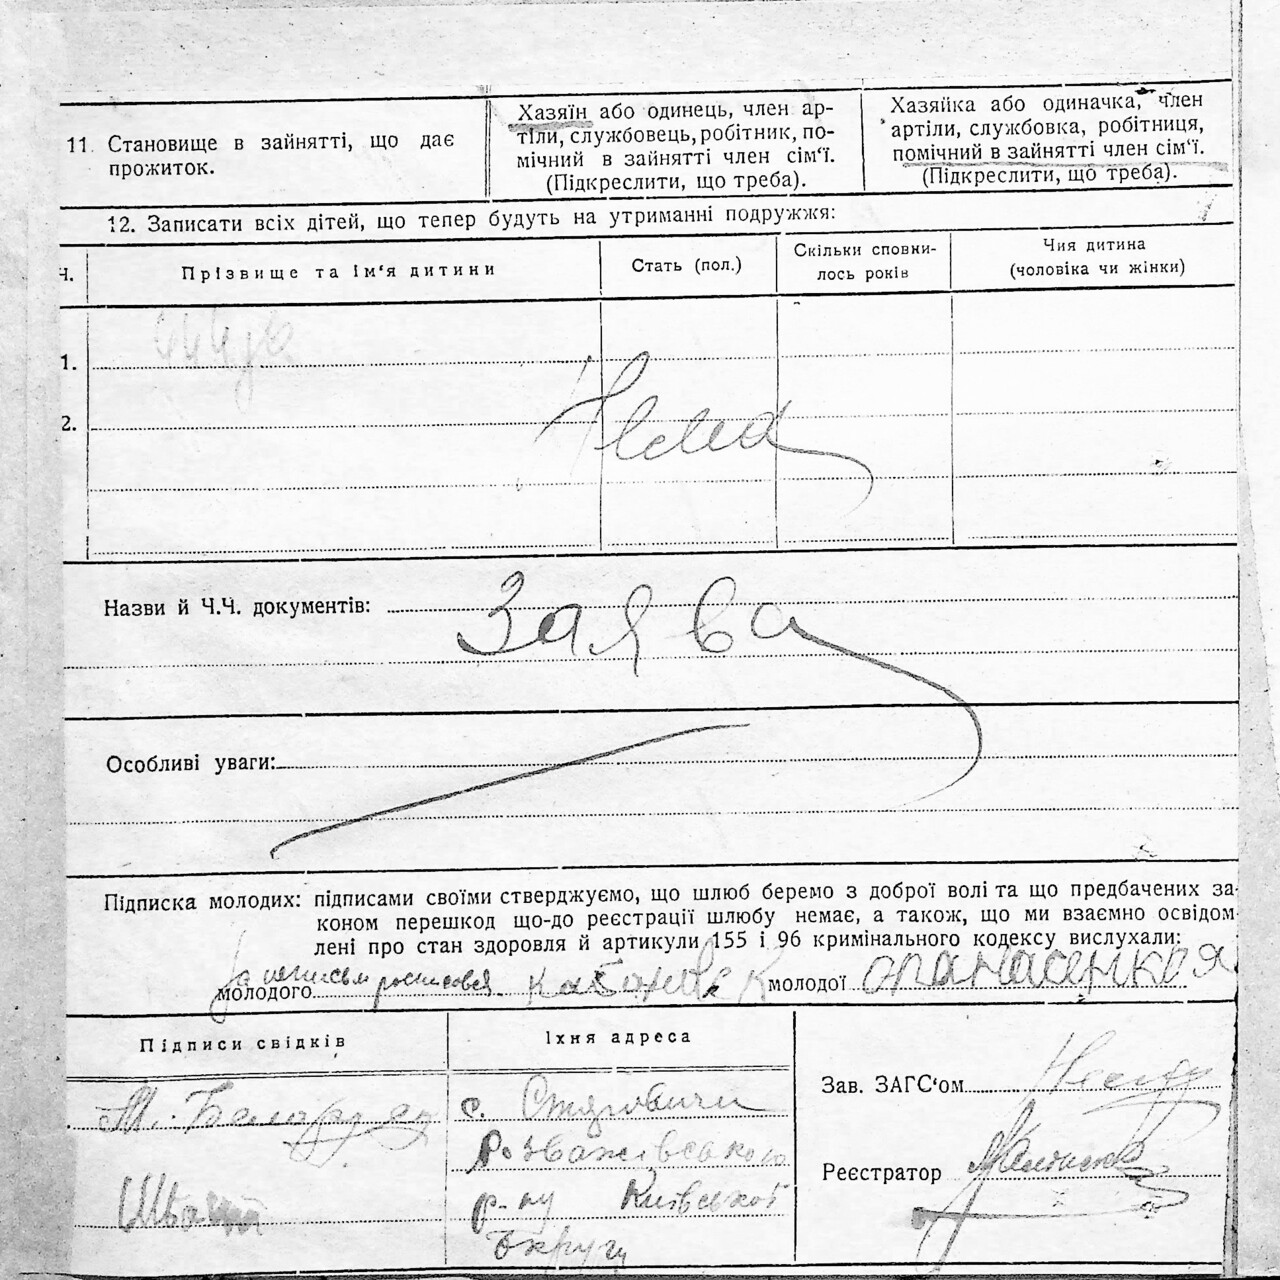 11. Становище в зайнятті, що дає
прожиток.
Хазяїн або одинець, член ар-
тіли, службовець, робітник, по-
мічний в зайнятті член сім‘ї.
(Підкреслити, що треба).
Хазяйка або одиначка, член
артіли, службовка, робітниця,
помічний в зайнятті член сім‘ї.
(Підкреслити, що треба).
12. Записати всіх дітей, що тепер будуть на утриманні подружжя:
Ч.
Прізвище та ім‘я дитини
Стать (пол.)
Скільки сповни-
лось років
Чия дитина
(чоловіка чи жінки)
1.
2.
Нема
Назви й Ч.Ч. документів: Заява
Особливі уваги:
Підписка молодих: підписами своїми стверджуємо, що шлюб беремо з доброї волі та що предбачених за-
коном перешкод що-до реєстрації шлюбу немає, а також, що ми взаємно освідом
лені про стан здоровля й артикули 155 і 96 кримінального кодексу вислухали:
молодого росписовся молодої опанасенкоя
Підписи свідків
Їхня адреса
с. Стяговичи
Розважівського
р-ну Київської
Округи
Шваци
Зав. ЗАГС‘ом
Реєстратор